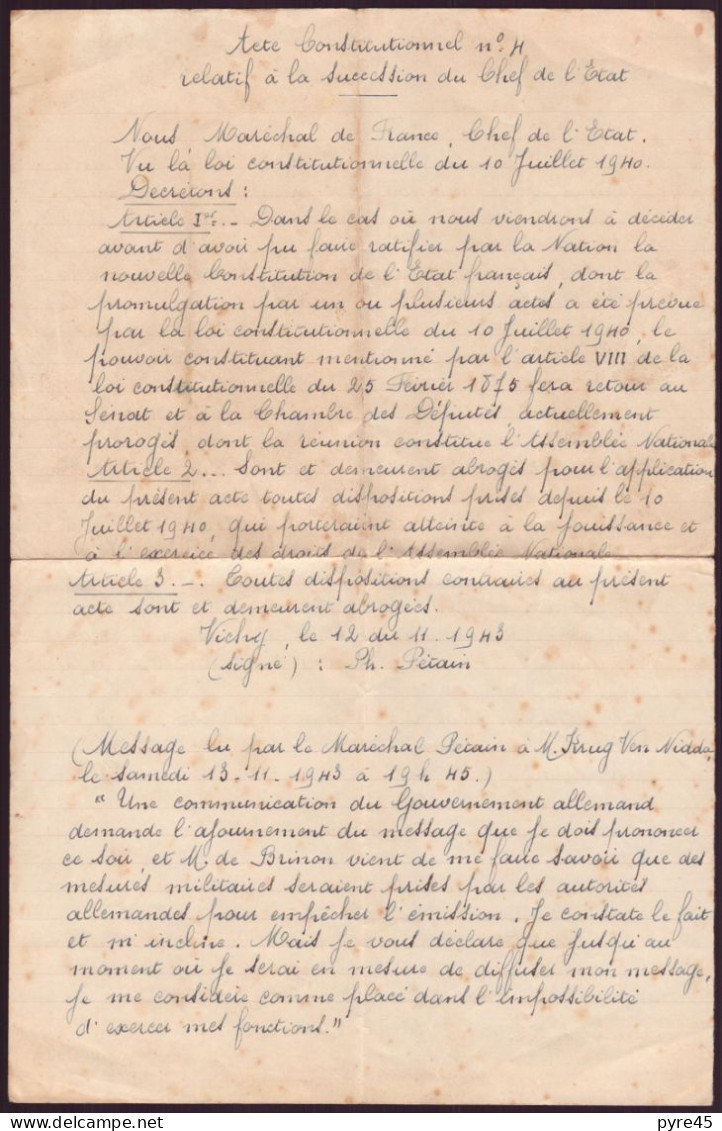 Acte Constitutionnel n° 4
relatif à la succession du Chef de l'Etat
Nous Maréchal de France, Chef de l'Etat.
Vu la loi constitutionnelle du 10 Juillet 1940.
Decrétons :
Article Ier. - Dans le cas où nous viendrons à décéder
avant d'avoir pu faire ratifier par la Nation la
nouvelle Constitution de l'Etat français, dont la
promulgation par un ou plusieurs actes a été prévue
par la loi constitutionnelle du 10 Juillet 1940, le
pouvoir constituant mentionné par l'article VIII de la
loi constitutionnelle du 25 Février 1875 fera retour au
Sénat et à la Chambre des Députés, actuellement
prorogés, dont la réunion constitue l'Assemblée Nationale
Article 2... Sont et demeurent abrogés pour l'application
du présent acte toutes dispositions prises depuis le 10
Juillet 1940, qui porteraient atteinte à la jouissance et
à l'exercice des droits de l'Assemblée Nationale
Article 3. -. Toutes dispositions contraires au présent
acte sont et demeurent abrogées.
Vichy, le 12 du 11. 1943
(signé) : Ph. Pétain
(Message lu par le Maréchal Pétain à M. Krug Von Nidda,
le samedi 13-11-1943 à 19h 45.)
"Une communication du Gouvernement allemand
demande l'ajournement du message que je dois prononcer
ce soir, et M. de Brinon vient de me faire savoir que des
mesures militaires seraient prises par les autorités
allemandes pour empêcher l'émission. Je constate le fait
et m'incline. Mais je vous déclare que jusqu'au
moment où je serai en mesure de diffuser mon message,
je me considère comme placé dans l'impossibilité
d'exercer mes fonctions."
pyre45